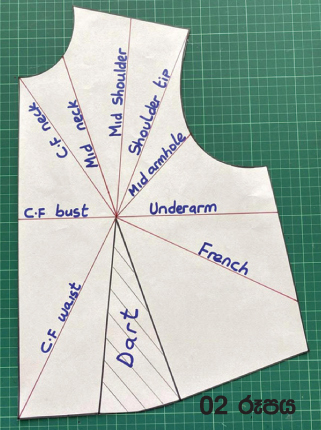 C.F neck
Mid neck
Mid shoulder
Shoulder tip
Mid armhole
C.F bust
Underarm
French
C.F waist
Dart
02 රූපය